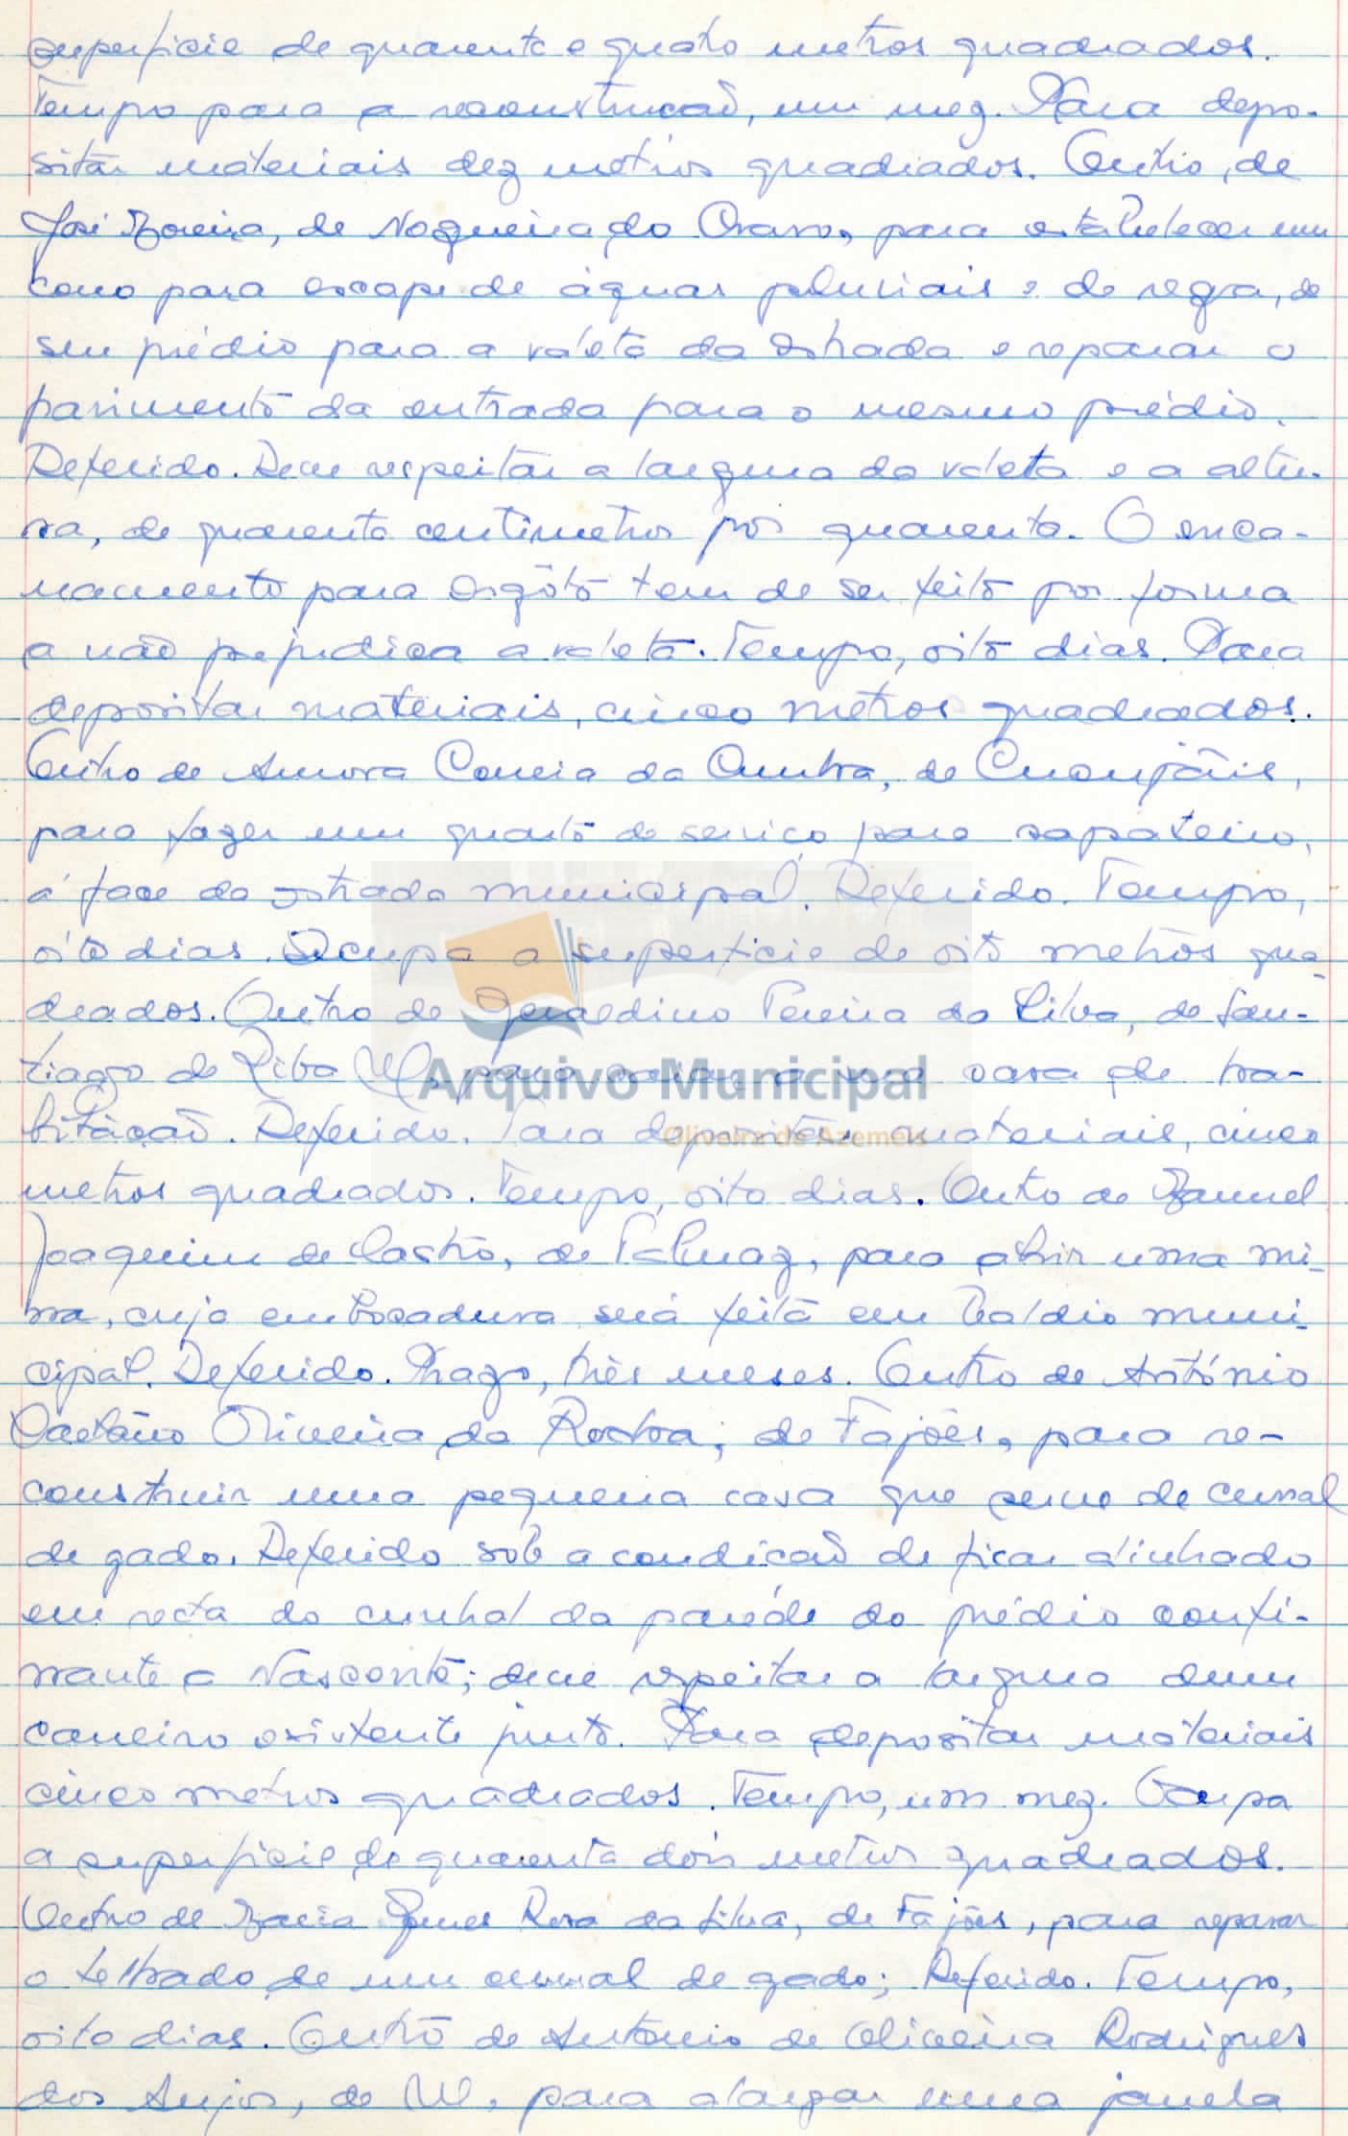 superficie de quarenta e quatro metros quadrados.
Tempo para a reconstrucão, um mez. Para depo-
sitar materiais dez metros quadrados. Outro, de
José Moreira, de Nogueira do Cravo, para estabelecer um
cano para escape de águas pluviais e de rega, de
seu prédio para a valeta da estrada e reparar o
pavimento da entrada para o mesmo prédio.
Deferido. Deve respeitar a largura da valeta e a altu-
ra, de quarenta centimetros por quarenta. O enca-
namento para esgôto tem de ser feito por forma
a não prejudica a valeta. Tempo, oito dias. Para
depositar materiais, cinco metros quadrados.
Outro de Amora Correia da Cunha, de
para fazer um quarto de servico para sapateiro,
á face da estrada municipal. Deferido. Tempo,
oito dias. Ocupa a superficie de oito metros qua-
drados. Outro de Geraldino Pereira da Silva, de San-
tiago de Riba Ul, para caiar a sua casa de ha-
bitacão. Deferido. Para depositar materiais, cinco
metros quadrados. Tempo, oito dias. Outo de Manuel
Joaquim de Castro, de Palmaz, para abrir uma mi-
na, cuja embocadura será feita em baldio muni-
cipal. Deferido. Prazo, três meses. Outro de António
Caetano Oliveira da Rocha, de Fajões, para re-
construir uma pequena casa que serve de curral
de gado. Deferido sob a condicão de ficar alinhado
em recta do cunhal da paréde do prédio confi-
nante a Nascente; deve respeitar a largura dum
carreiro existente junto. Para depositar materiais
cinco metros quadrados. Tempo, um mez. Ocupa
a superficie de quarenta dois metros quadrados.
Outro de Maria Rosa da Silva, de Fajões, para reparar
o telhado de um curral de gado; Deferido. Tempo,
oito dias. Outro de Antonio de Oliveira Rodrigues
dos Anjos, de Ul, para alargar uma janela
Arquivo Municipal
Oliveira de Azeméis